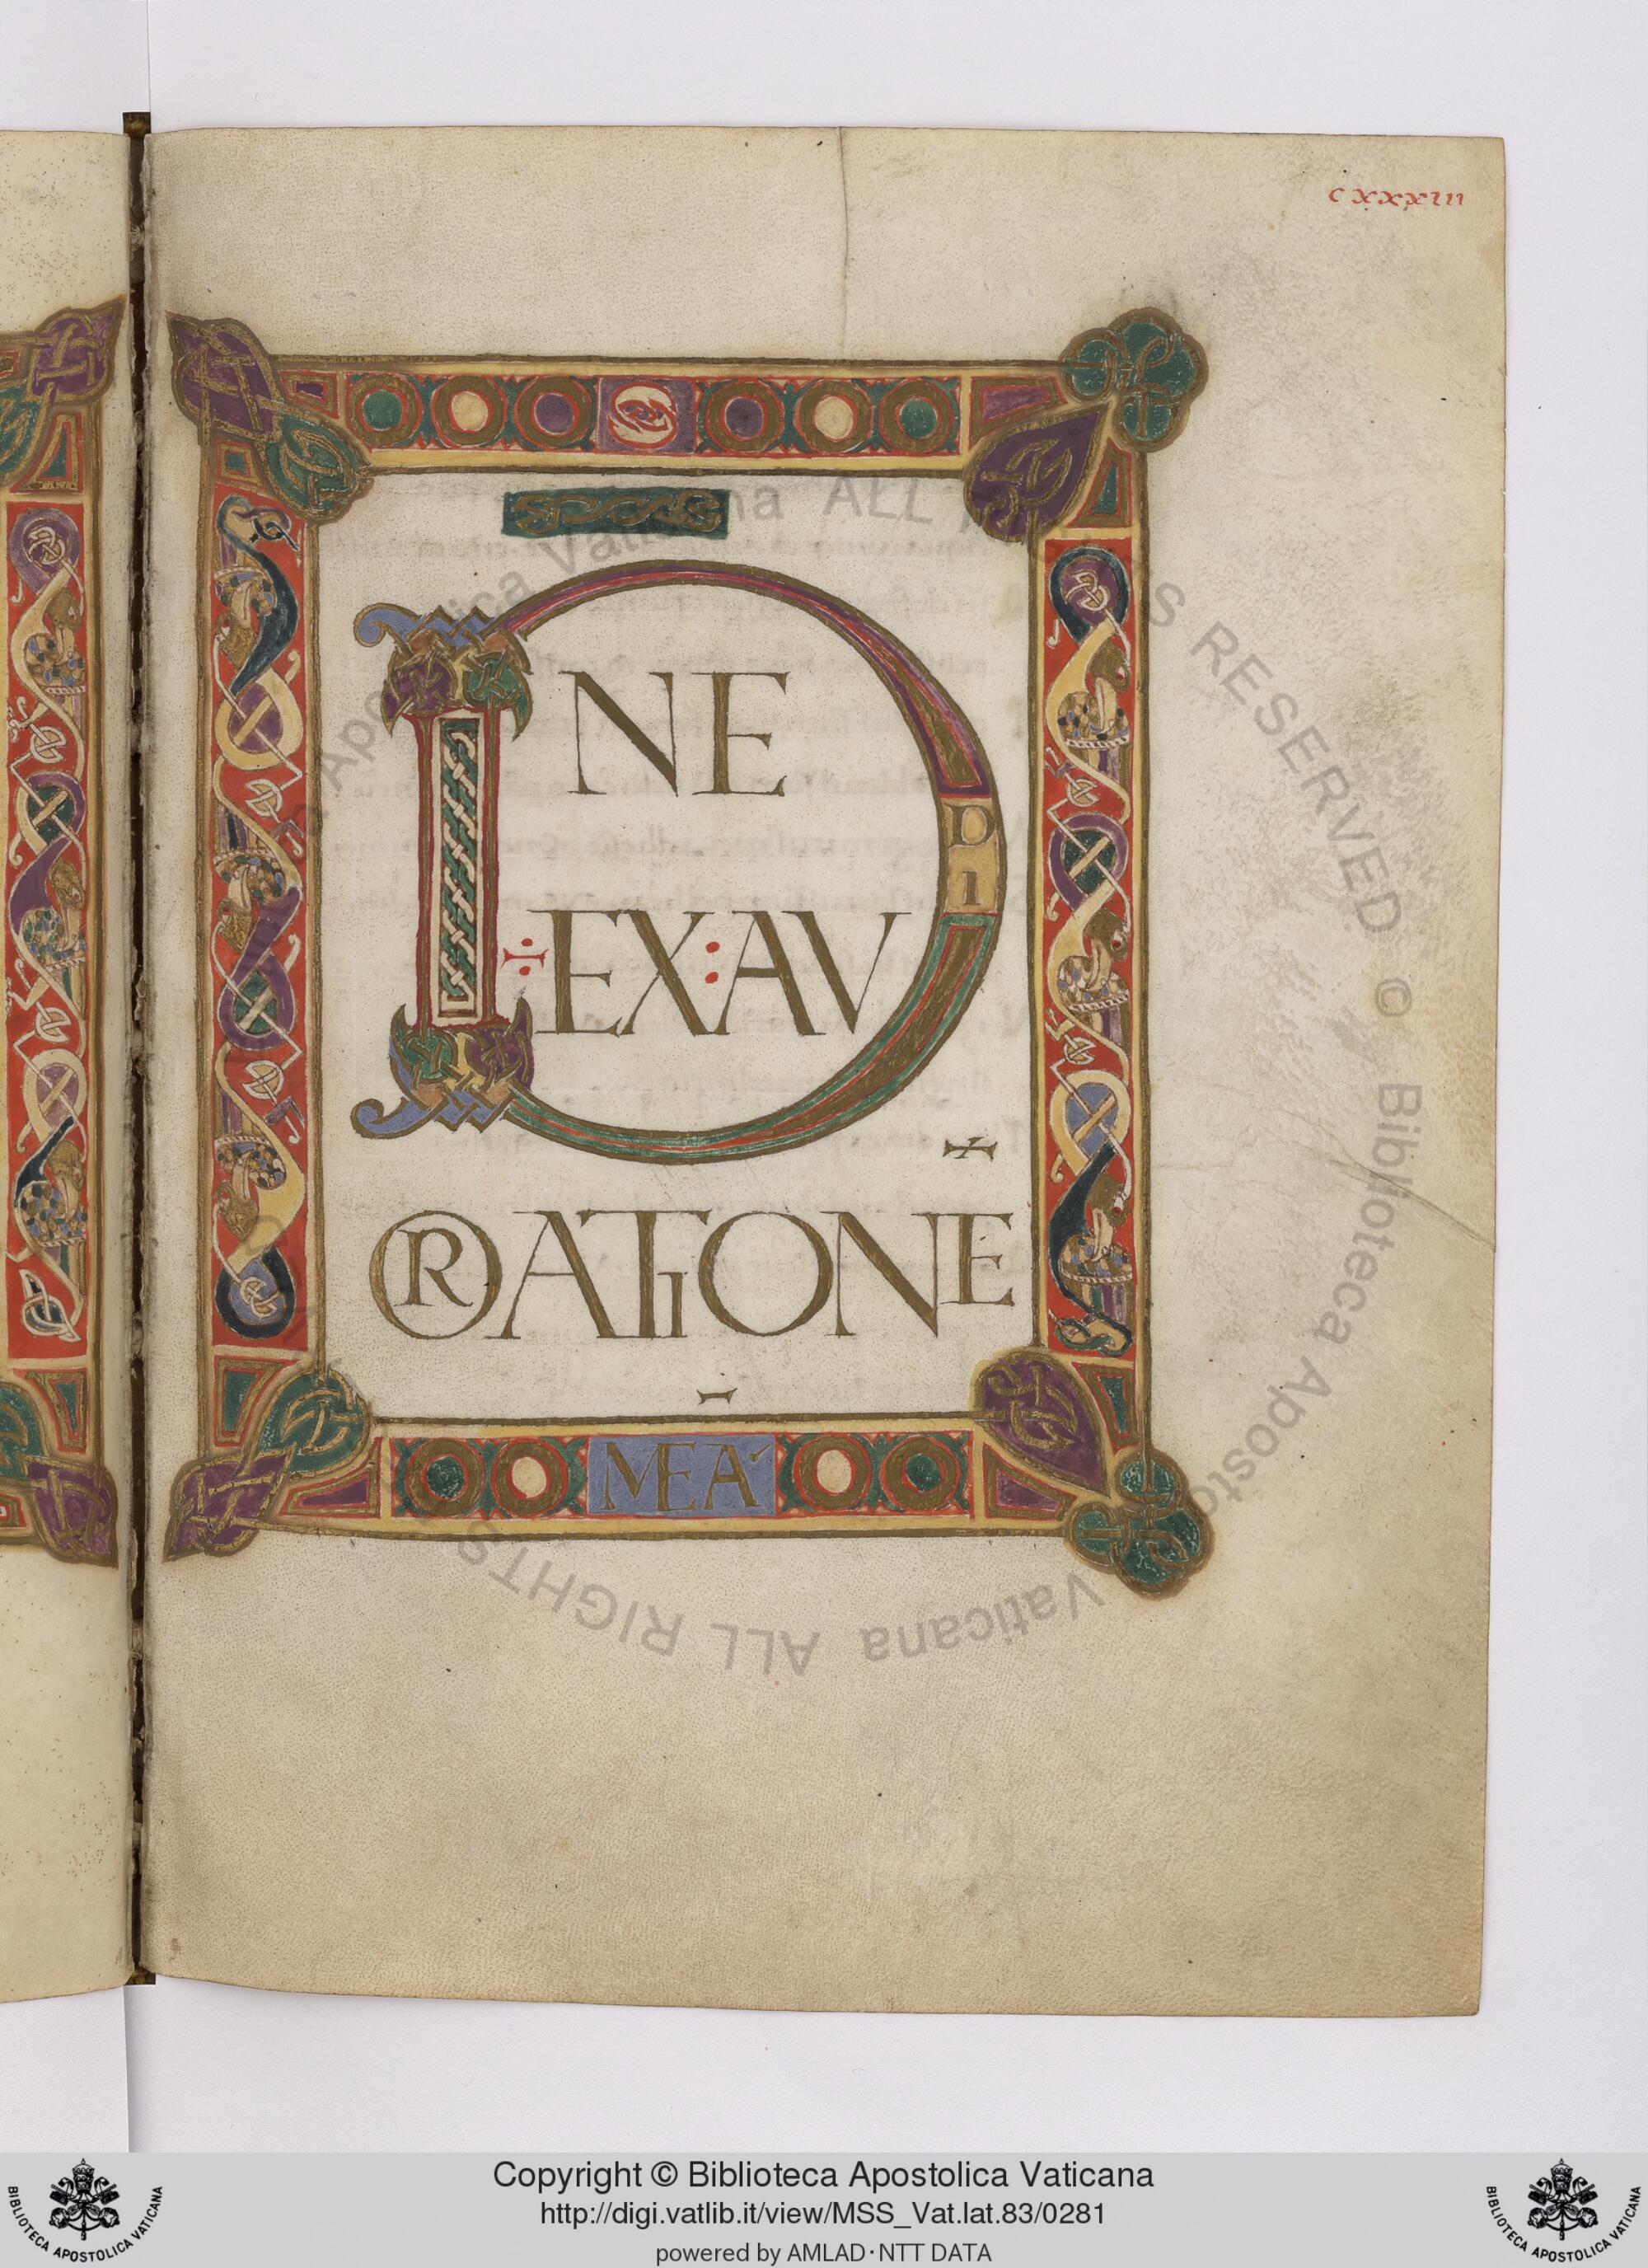 cxxxiii
DNE
EX:AVDI
ORATIONE
MEA
Copyright © Biblioteca Apostolica Vaticana
http://digi.vatlib.it/view/MSS_Vat.lat.83/0281
powered by AMLAD·NTT DATA
BIBLIOTECA APOSTOLICA VATICANA
BIBLIOTECA APOSTOLICA VATICANA
© Biblioteca Apostolica Vaticana ALL RIGHTS RESERVED © Biblioteca Apostolica Vaticana ALL RIGHTS